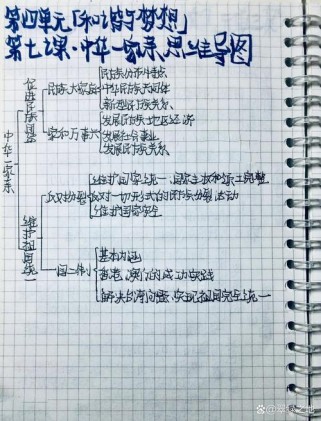 第四单元「和谐与梦想」
第七课·中华一家亲 思维导图
中华一家亲
促进民族团结
民族大家庭
民族分布特点
中华民族共同体
新型民族关系
家和万事兴
发展民族地区经济
发展社会事业
发展民族关系
维护祖国统一
反对分裂
维护国家统一、国家主权和领土完整
反对一切形式的民族分裂活动
维护国家安全
一国两制
基本内容
香港、澳门的成功实践
解决台湾问题、实现祖国完全统一